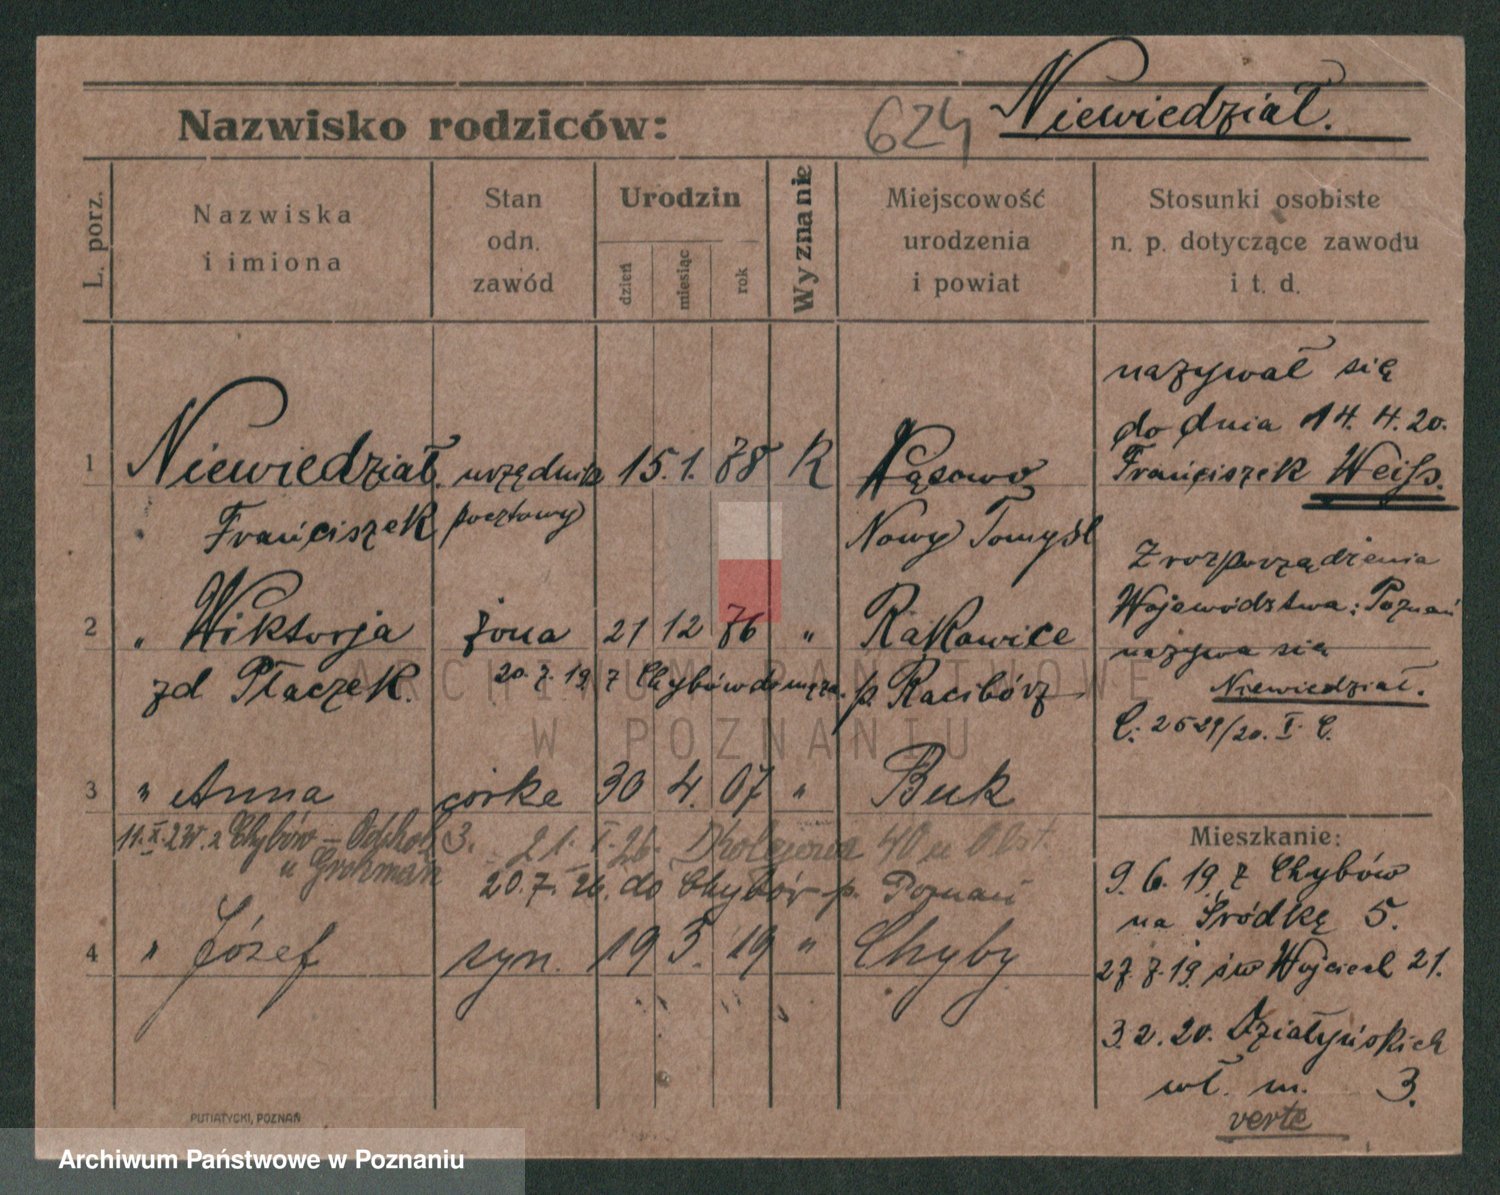 Nazwisko rodziców:
624
Niewiedział.
L. porz.
Nazwiska
i imiona
Stan
odn.
zawód
Urodzin
dzień
miesiąc
rok
Wyznanie
Miejscowość
urodzenia
i powiat
Stosunki osobiste
n. p. dotyczące zawodu
i t. d.
1 Niewiedział urzędnik 15. 1. 78 K Wąsowo
Franciszek pocztowy Nowy Tomyśl
2 " Wiktorja żona 21 12 76 " Rakowice
zd Płaczek. 20. 7. 19 z Chybów do męża. p. Racibórz
3 " Anna córka 30 4. 07 " Buk
z Chybów 3. 21. I. 26. 40 u
u Grohman 20. 7. 26. do Chybów p. Poznań
4 " Józef syn. 19 3. 19 " Chyby
nazywał się
do dnia 14. 4. 20.
Franciszek Weiss.
Z rozporządzenia
Województwa: Poznań
nazywa się
Niewiedział.
C: 2529/20. I. C.
Mieszkanie:
9. 6. 19 z Chybów
na Śródkę 5.
27. 7. 19. św Wojciech 21.
3. 2. 20. Działyńskich
wł. m. 3.
verte
PUTIATYCKI, POZNAŃ
ARCHIWUM PAŃSTWOWE
W POZNANIU
Archiwum Państwowe w Poznaniu